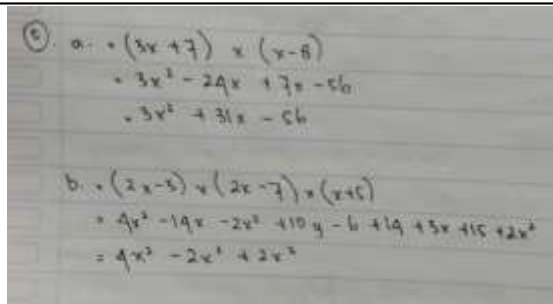 5. a. = (3x + 7) x (x - 8)
= 3x² - 24x + 7x - 56
= 3x² + 31x - 56
b. = (2x - 3) x (2x - 7) x (x + 5)
= 4x² - 14x - 2x² + 10 y - 6 + 14 + 3x + 15 + 2x²
= 4x² - 2x² + 2x²